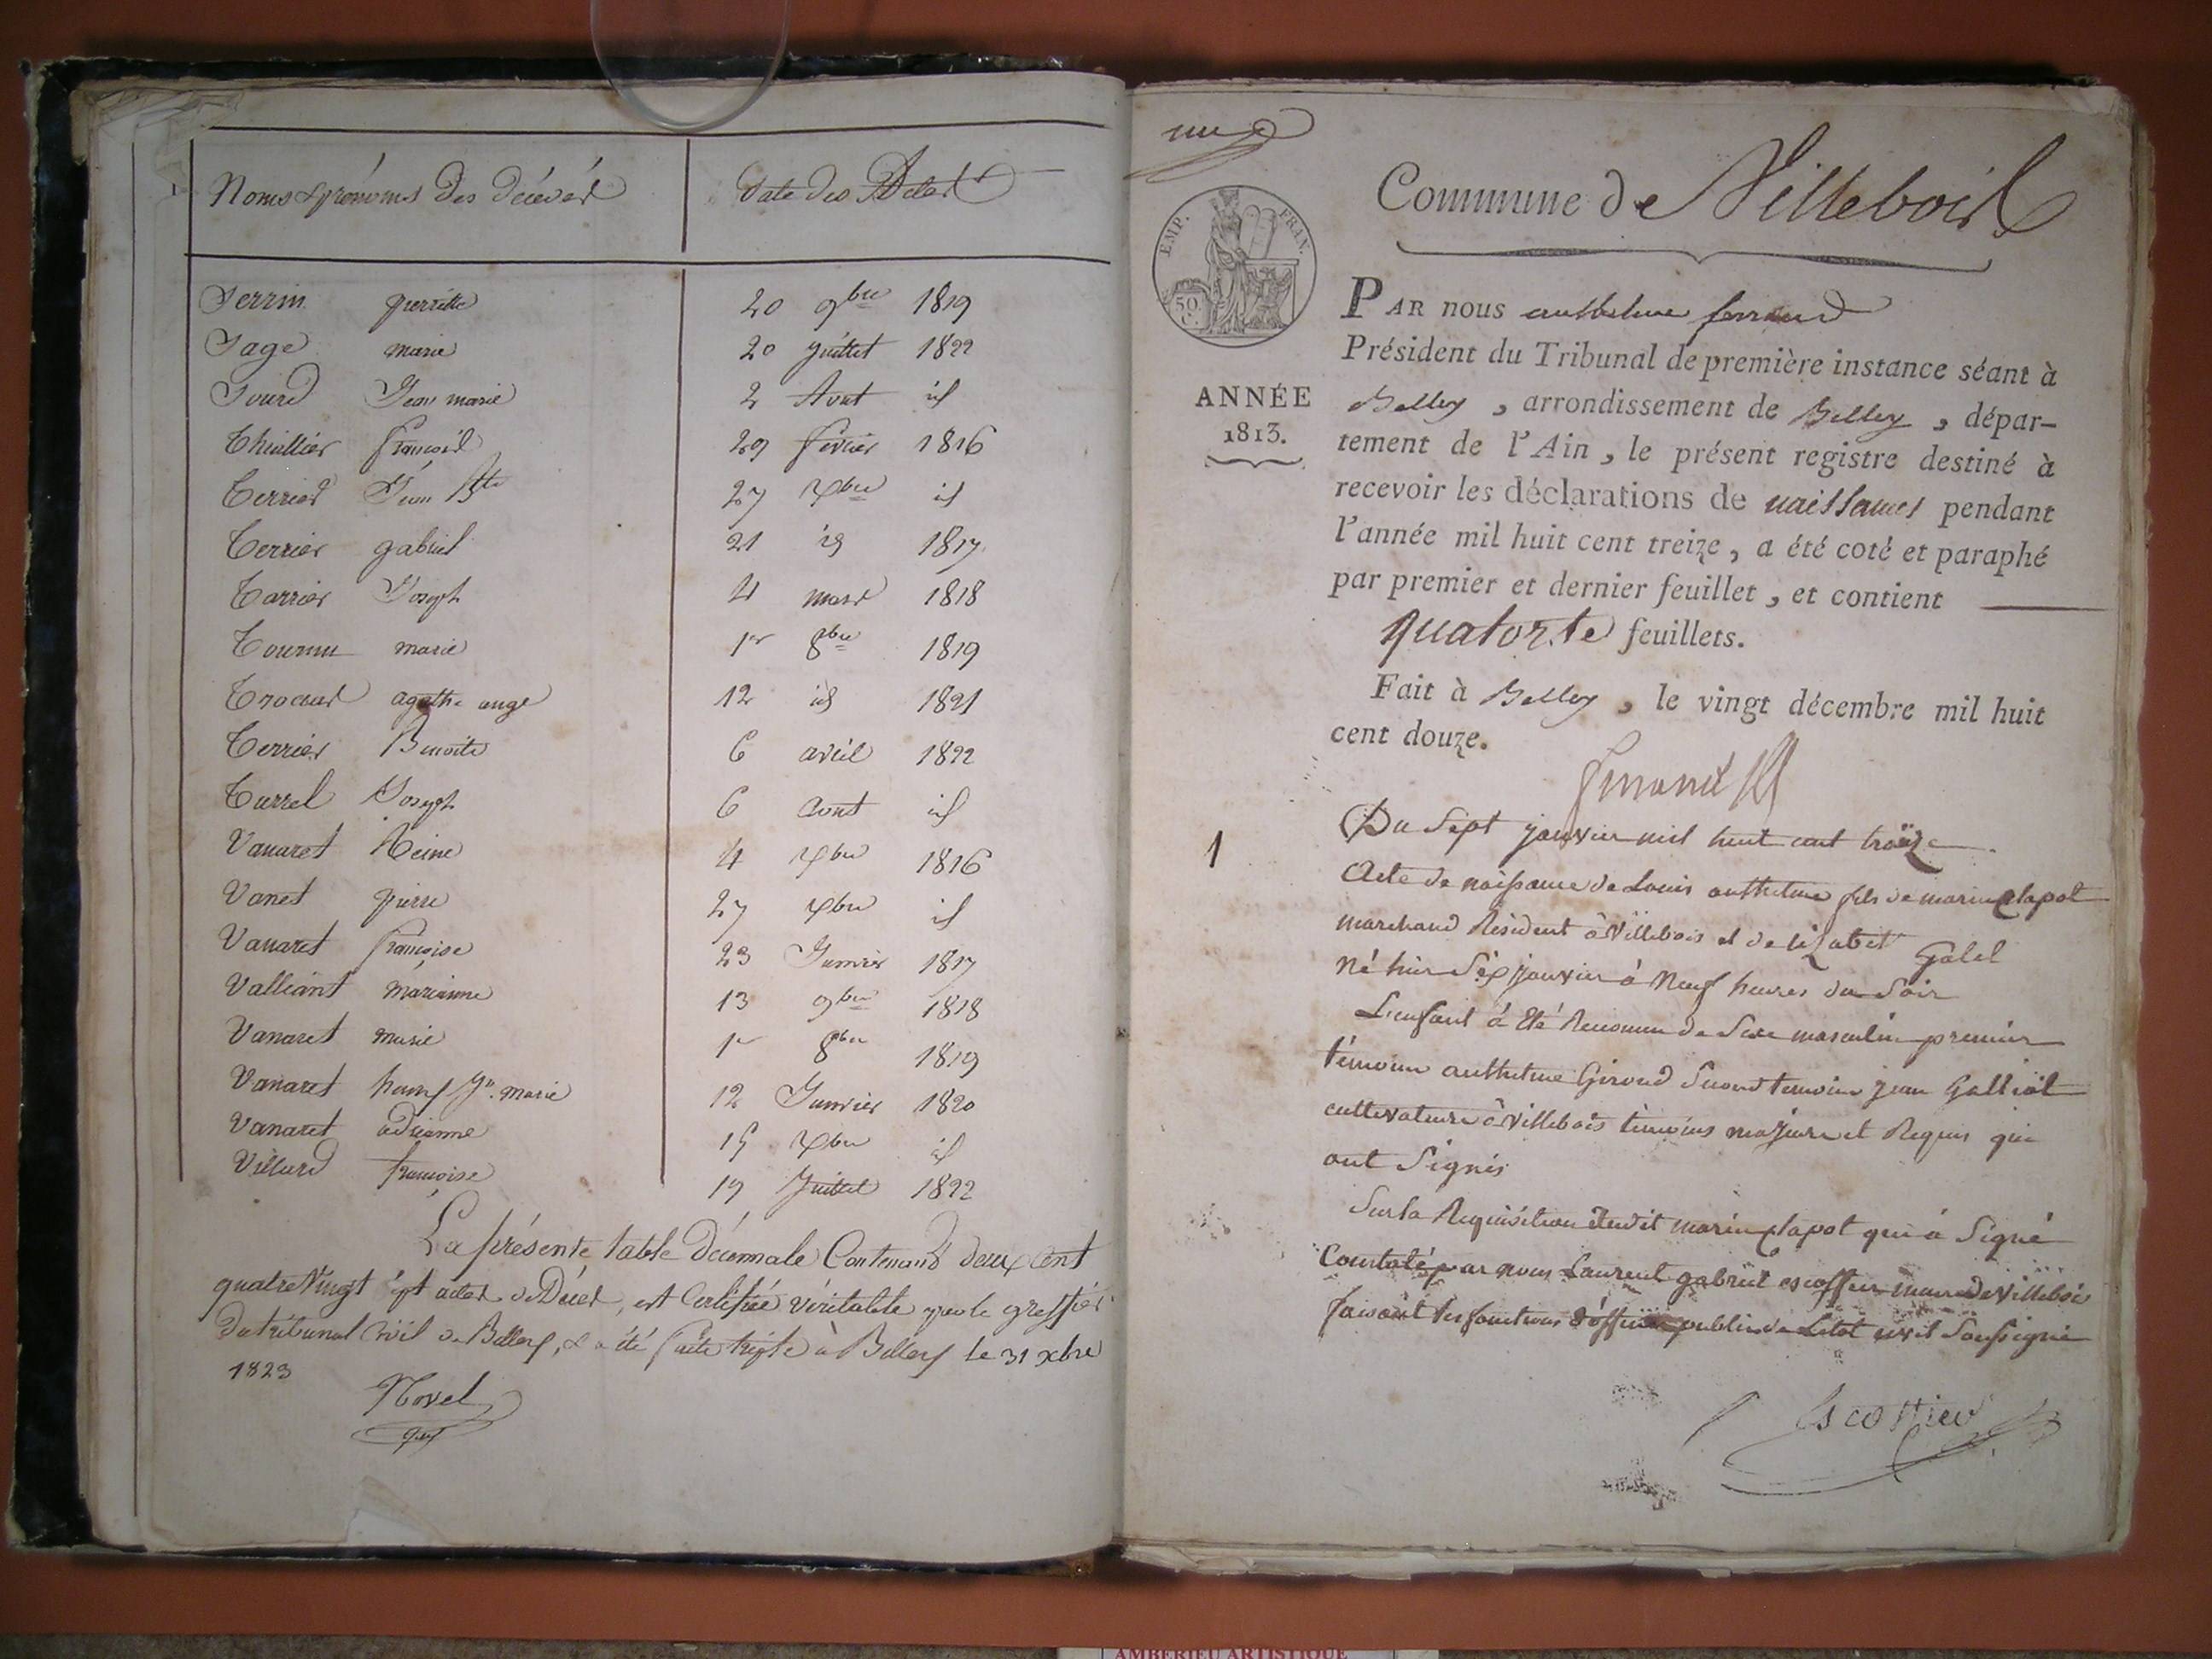 Noms & prénoms des décédés
Date des Actes
Serrin pierrette 20 9bre 1819
Sage marie 20 juillet 1822
Sourd Jean marie 2 Aout id
Thuillier françois 29 février 1816
Terrier Jean Bte 27 Xbre id
Terrier gabriel 21 id 1817
Tarrier Joseph 4 mars 1818
Tournu marie 1er 8bre 1819
Trocard agathe ange 12 id 1821
Terrier Benoite 6 avril 1822
Turrel Joseph 6 aout id
Vanaret Reine 4 Xbre 1816
Vanet pierre 27 Xbre id
Vanaret françoise 23 Janvier 1817
Valliant marianne 13 9bre 1818
Vanaret marie 1er 8bre 1819
Vanaret Jn. marie 12 Janvier 1820
Vanaret adrianne 15 Xbre id
Villard françoise 19 Juillet 1822
La présente table Décennale Contenant deux cent
quatre Vingt sept actes de Décès, est Certifiée véritable par le greffier
du tribunal Civil de Belley, & a été faite triple à Belley le 31 xbre
1823
Novel
EMP. FRAN.
50 C.
ANNÉE
1813.
Commune de Villebois
PAR nous anthelme ferrand
Président du Tribunal de première instance séant à
Belley, arrondissement de Belley, dépar-
tement de l'Ain, le présent registre destiné à
recevoir les déclarations de naissances pendant
l'année mil huit cent treize, a été coté et paraphé
par premier et dernier feuillet, et contient
quatorze feuillets.
Fait à Belley, le vingt décembre mil huit
cent douze.
1
Du Sept janvier mil huit cent treize
Acte de naissance de Louis anthelme fils de marin Clapot
marchand Résident à Villebois et de Elizabet Galel
Né hier Six janvier à Neuf heures du Soir
L'enfant à Eté Reconnu de Sexe masculin premier
témoin anthelme Giroud Second temoin jean Galliot
cultivateurs à Villebois témoins majeurs et Requis qui
ont Signés
Sur la Requisition dudit marin Clapot qui à Signé
Constaté par nous Laurent gabriel escoffier maire de Villebois
faisant les fonctions d'officier public de Letat civil Soussigné
Escoffier
AMBERIEU ARTISTIQUE